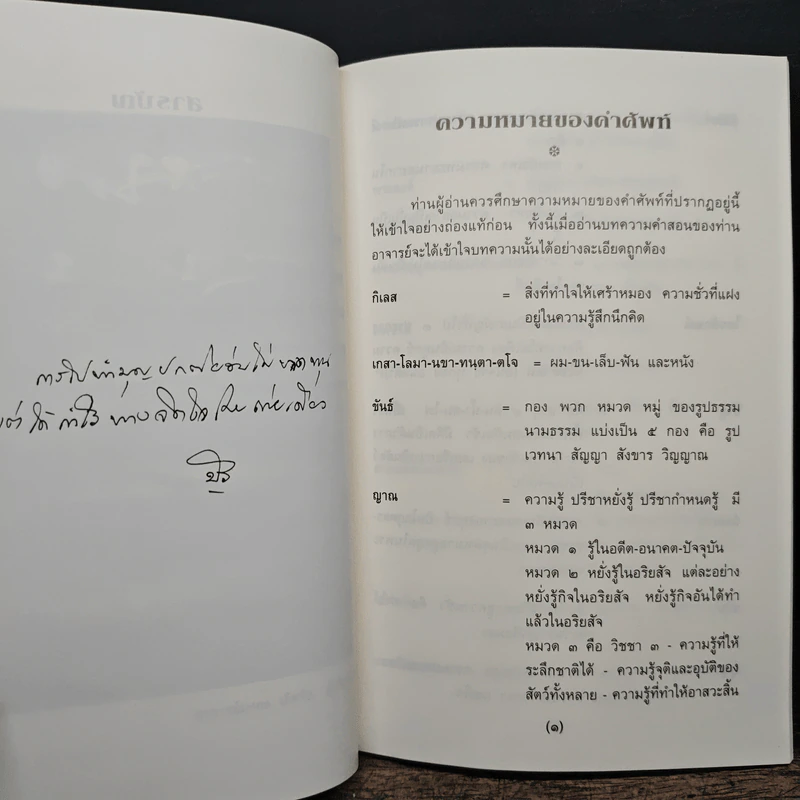 การไปทำบุญ
ทางจิตใจ
ความหมายของคำศัพท์
ท่านผู้อ่านควรศึกษาความหมายของคำศัพท์ที่ปรากฏอยู่นี้
ให้เข้าใจอย่างถ่องแท้ก่อน ทั้งนี้เมื่ออ่านบทความคำสอนของท่าน
อาจารย์จะได้เข้าใจบทความนั้นได้อย่างละเอียดถูกต้อง
กิเลส = สิ่งที่ทำใจให้เศร้าหมอง ความชั่วที่แฝง
อยู่ในความรู้สึกนึกคิด
เกสา-โลมา-นขา-ทนฺตา-ตโจ = ผม-ขน-เล็บ-ฟัน และหนัง
ขันธ์ = กอง พวก หมวด หมู่ ของรูปธรรม
นามธรรม แบ่งเป็น ๕ กอง คือ รูป
เวทนา สัญญา สังขาร วิญญาณ
ญาณ = ความรู้ ปรีชาหยั่งรู้ ปรีชากำหนดรู้ มี
๓ หมวด
หมวด ๑ รู้ในอดีต-อนาคต-ปัจจุบัน
หมวด ๒ หยั่งรู้ในอริยสัจ แต่ละอย่าง
หยั่งรู้กิจในอริยสัจ หยั่งรู้กิจอันได้ทำ
แล้วในอริยสัจ
หมวด ๓ คือ วิชชา ๓ - ความรู้ที่ให้
ระลึกชาติได้ - ความรู้จุติและอุบัติของ
สัตว์ทั้งหลาย - ความรู้ที่ทำให้อาสวะสิ้น
(๑)